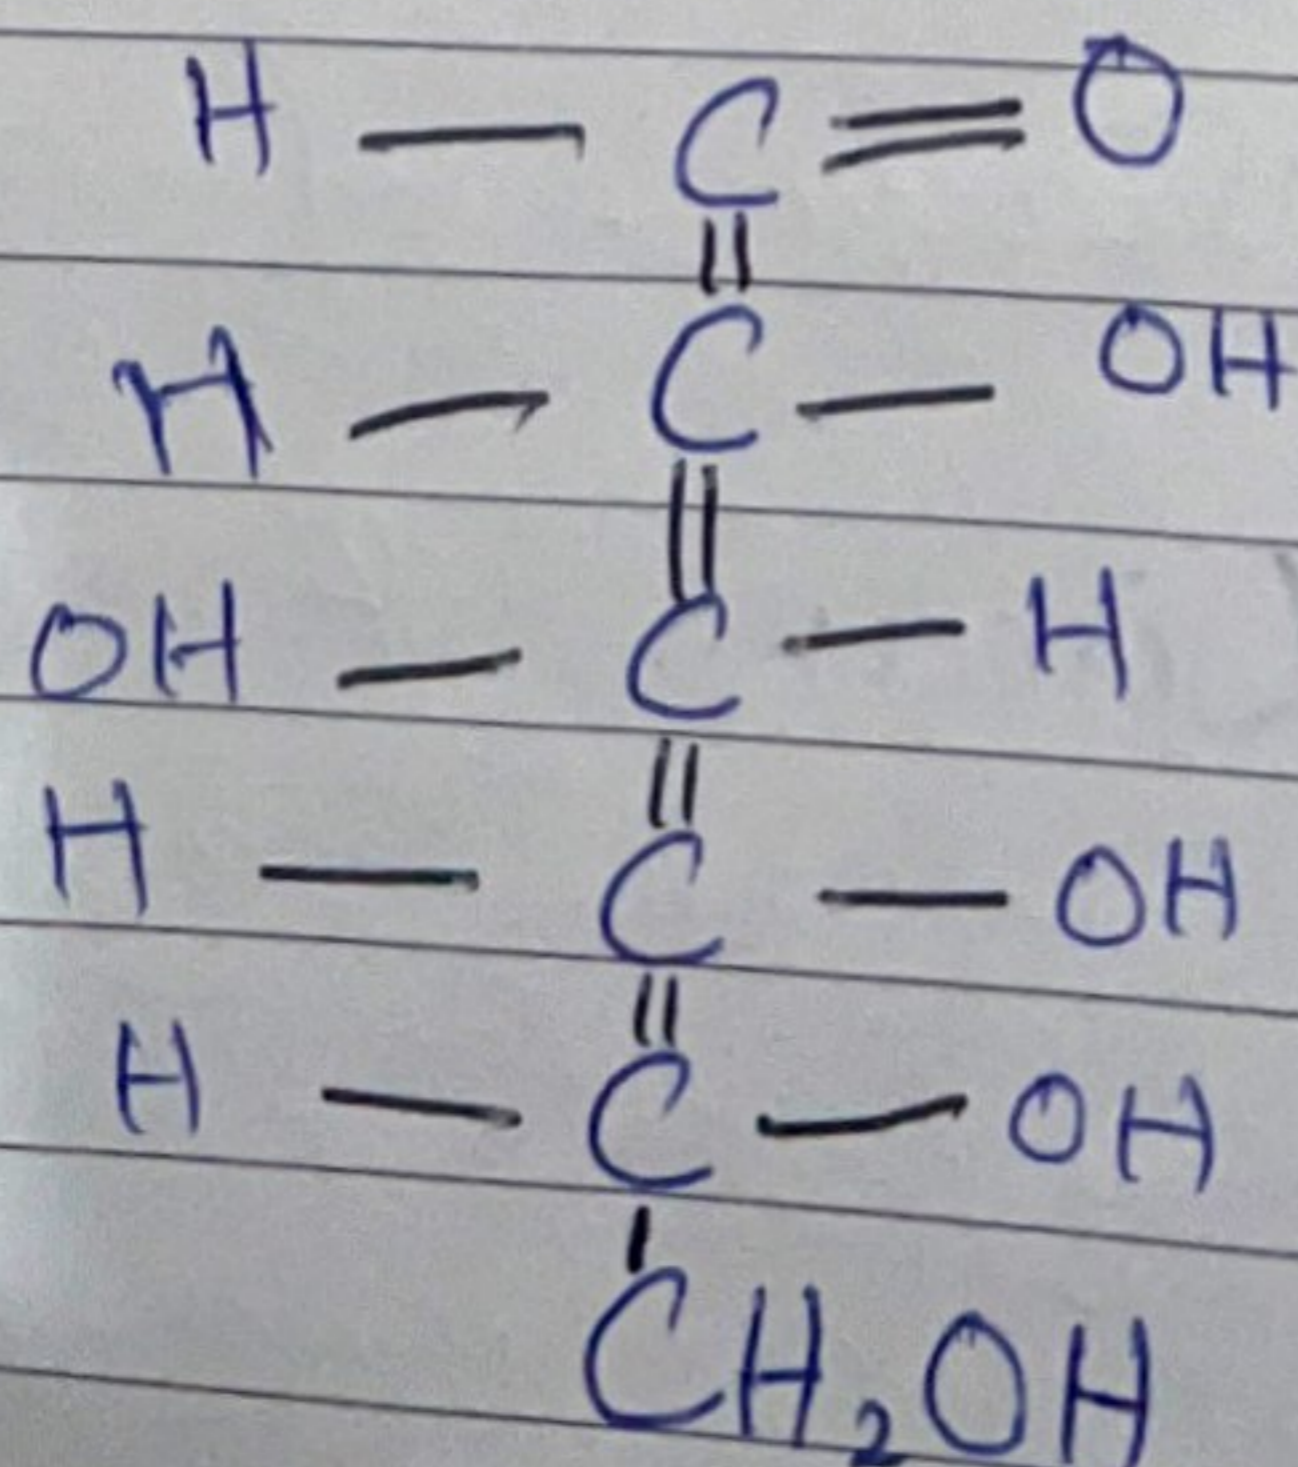 H — C = O
||
H — C — OH
||
OH — C — H
||
H — C — OH
||
H — C — OH
|
CH₂OH